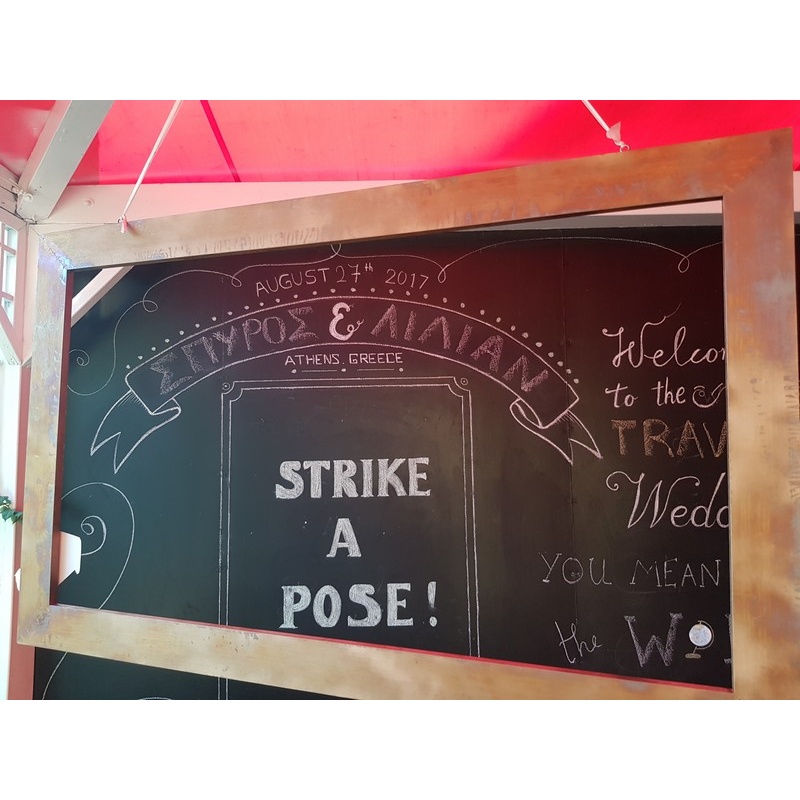 AUGUST 27th 2017
ΣΠΥΡΟΣ & ΛΙΛΙΑΝ
ATHENS. GREECE
STRIKE
A
POSE!
Welcom
to the
TRAV
Wedd
YOU MEAN
the W